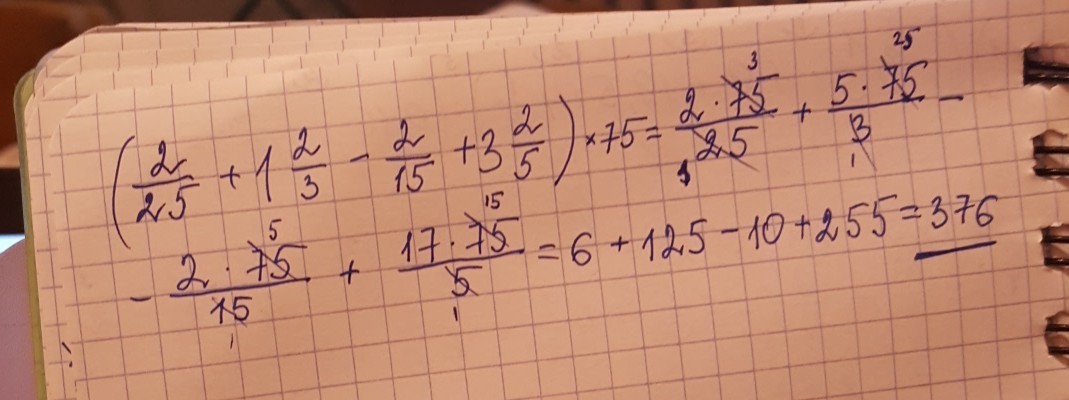 (2/25 + 1 2/3 - 2/15 + 3 2/5) × 75 = 2 · 75/25 + 5 · 75/3 -
- 2 · 75/15 + 17 · 75/5 = 6 + 125 - 10 + 255 = 376